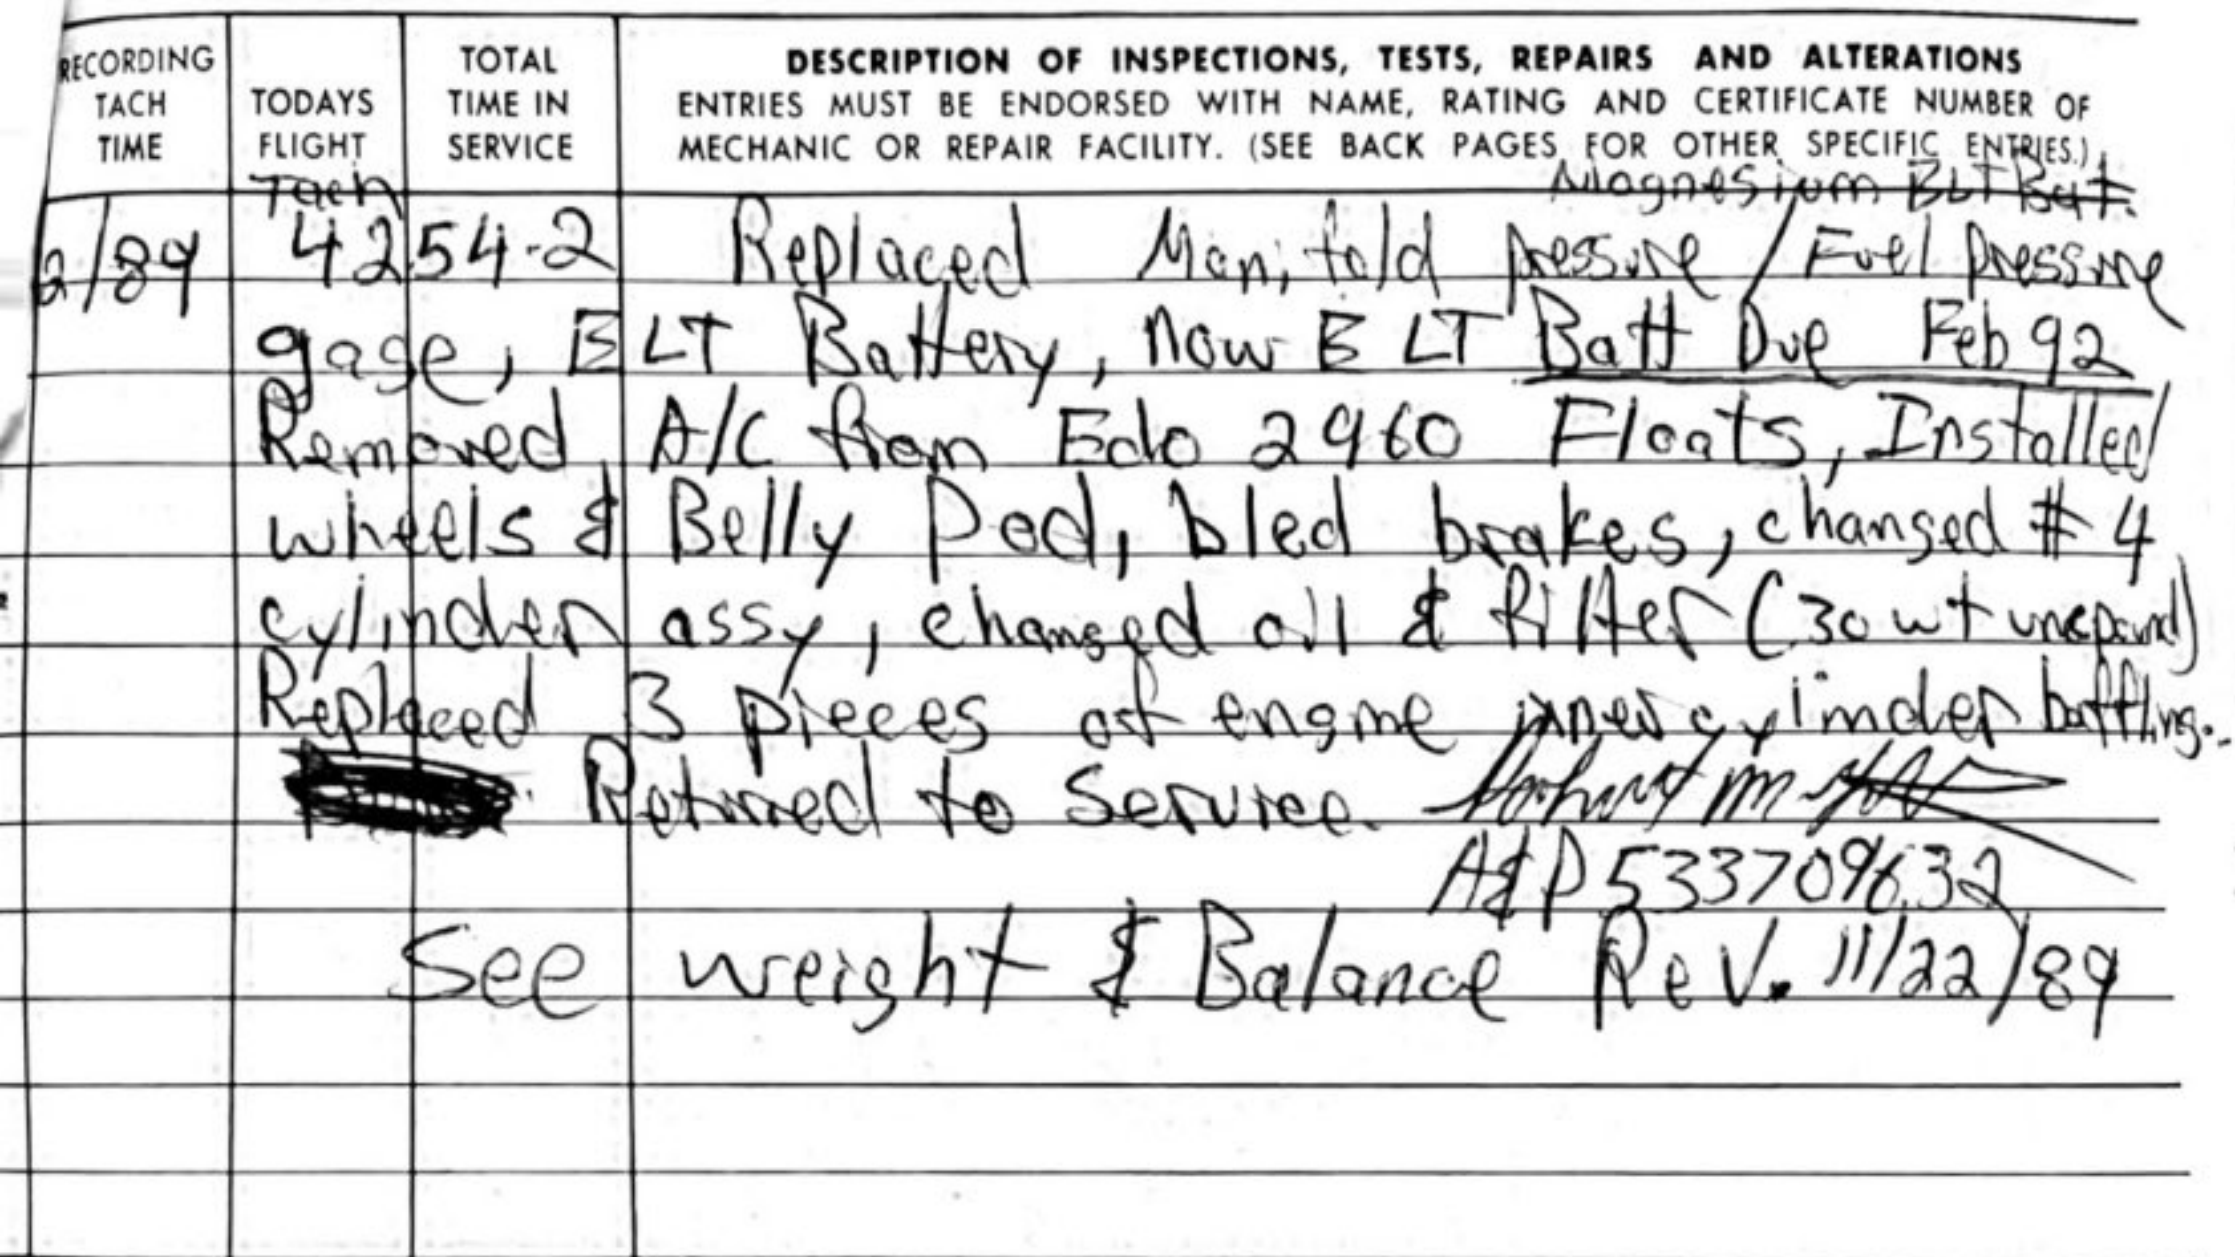 RECORDING TACH TIME
TODAYS FLIGHT
TOTAL TIME IN SERVICE
DESCRIPTION OF INSPECTIONS, TESTS, REPAIRS AND ALTERATIONS
ENTRIES MUST BE ENDORSED WITH NAME, RATING AND CERTIFICATE NUMBER OF
MECHANIC OR REPAIR FACILITY. (SEE BACK PAGES FOR OTHER SPECIFIC ENTRIES.)
Magnesium ELT Bat.
Tach
2/89 4254.2 Replaced Manifold pressure / Fuel pressure
gage, ELT Battery, now ELT Batt Due Feb 92
Removed A/C from Edo 2960 Floats, Installed
wheels & Belly Pod, bled brakes, changed # 4
cylinder assy, changed oil & filter (30 wt
Replaced 3 pieces of engine inner cylinder baffling.
Returned to Service.
A&P 533709632
See weight & Balance Rev. 11/22/89